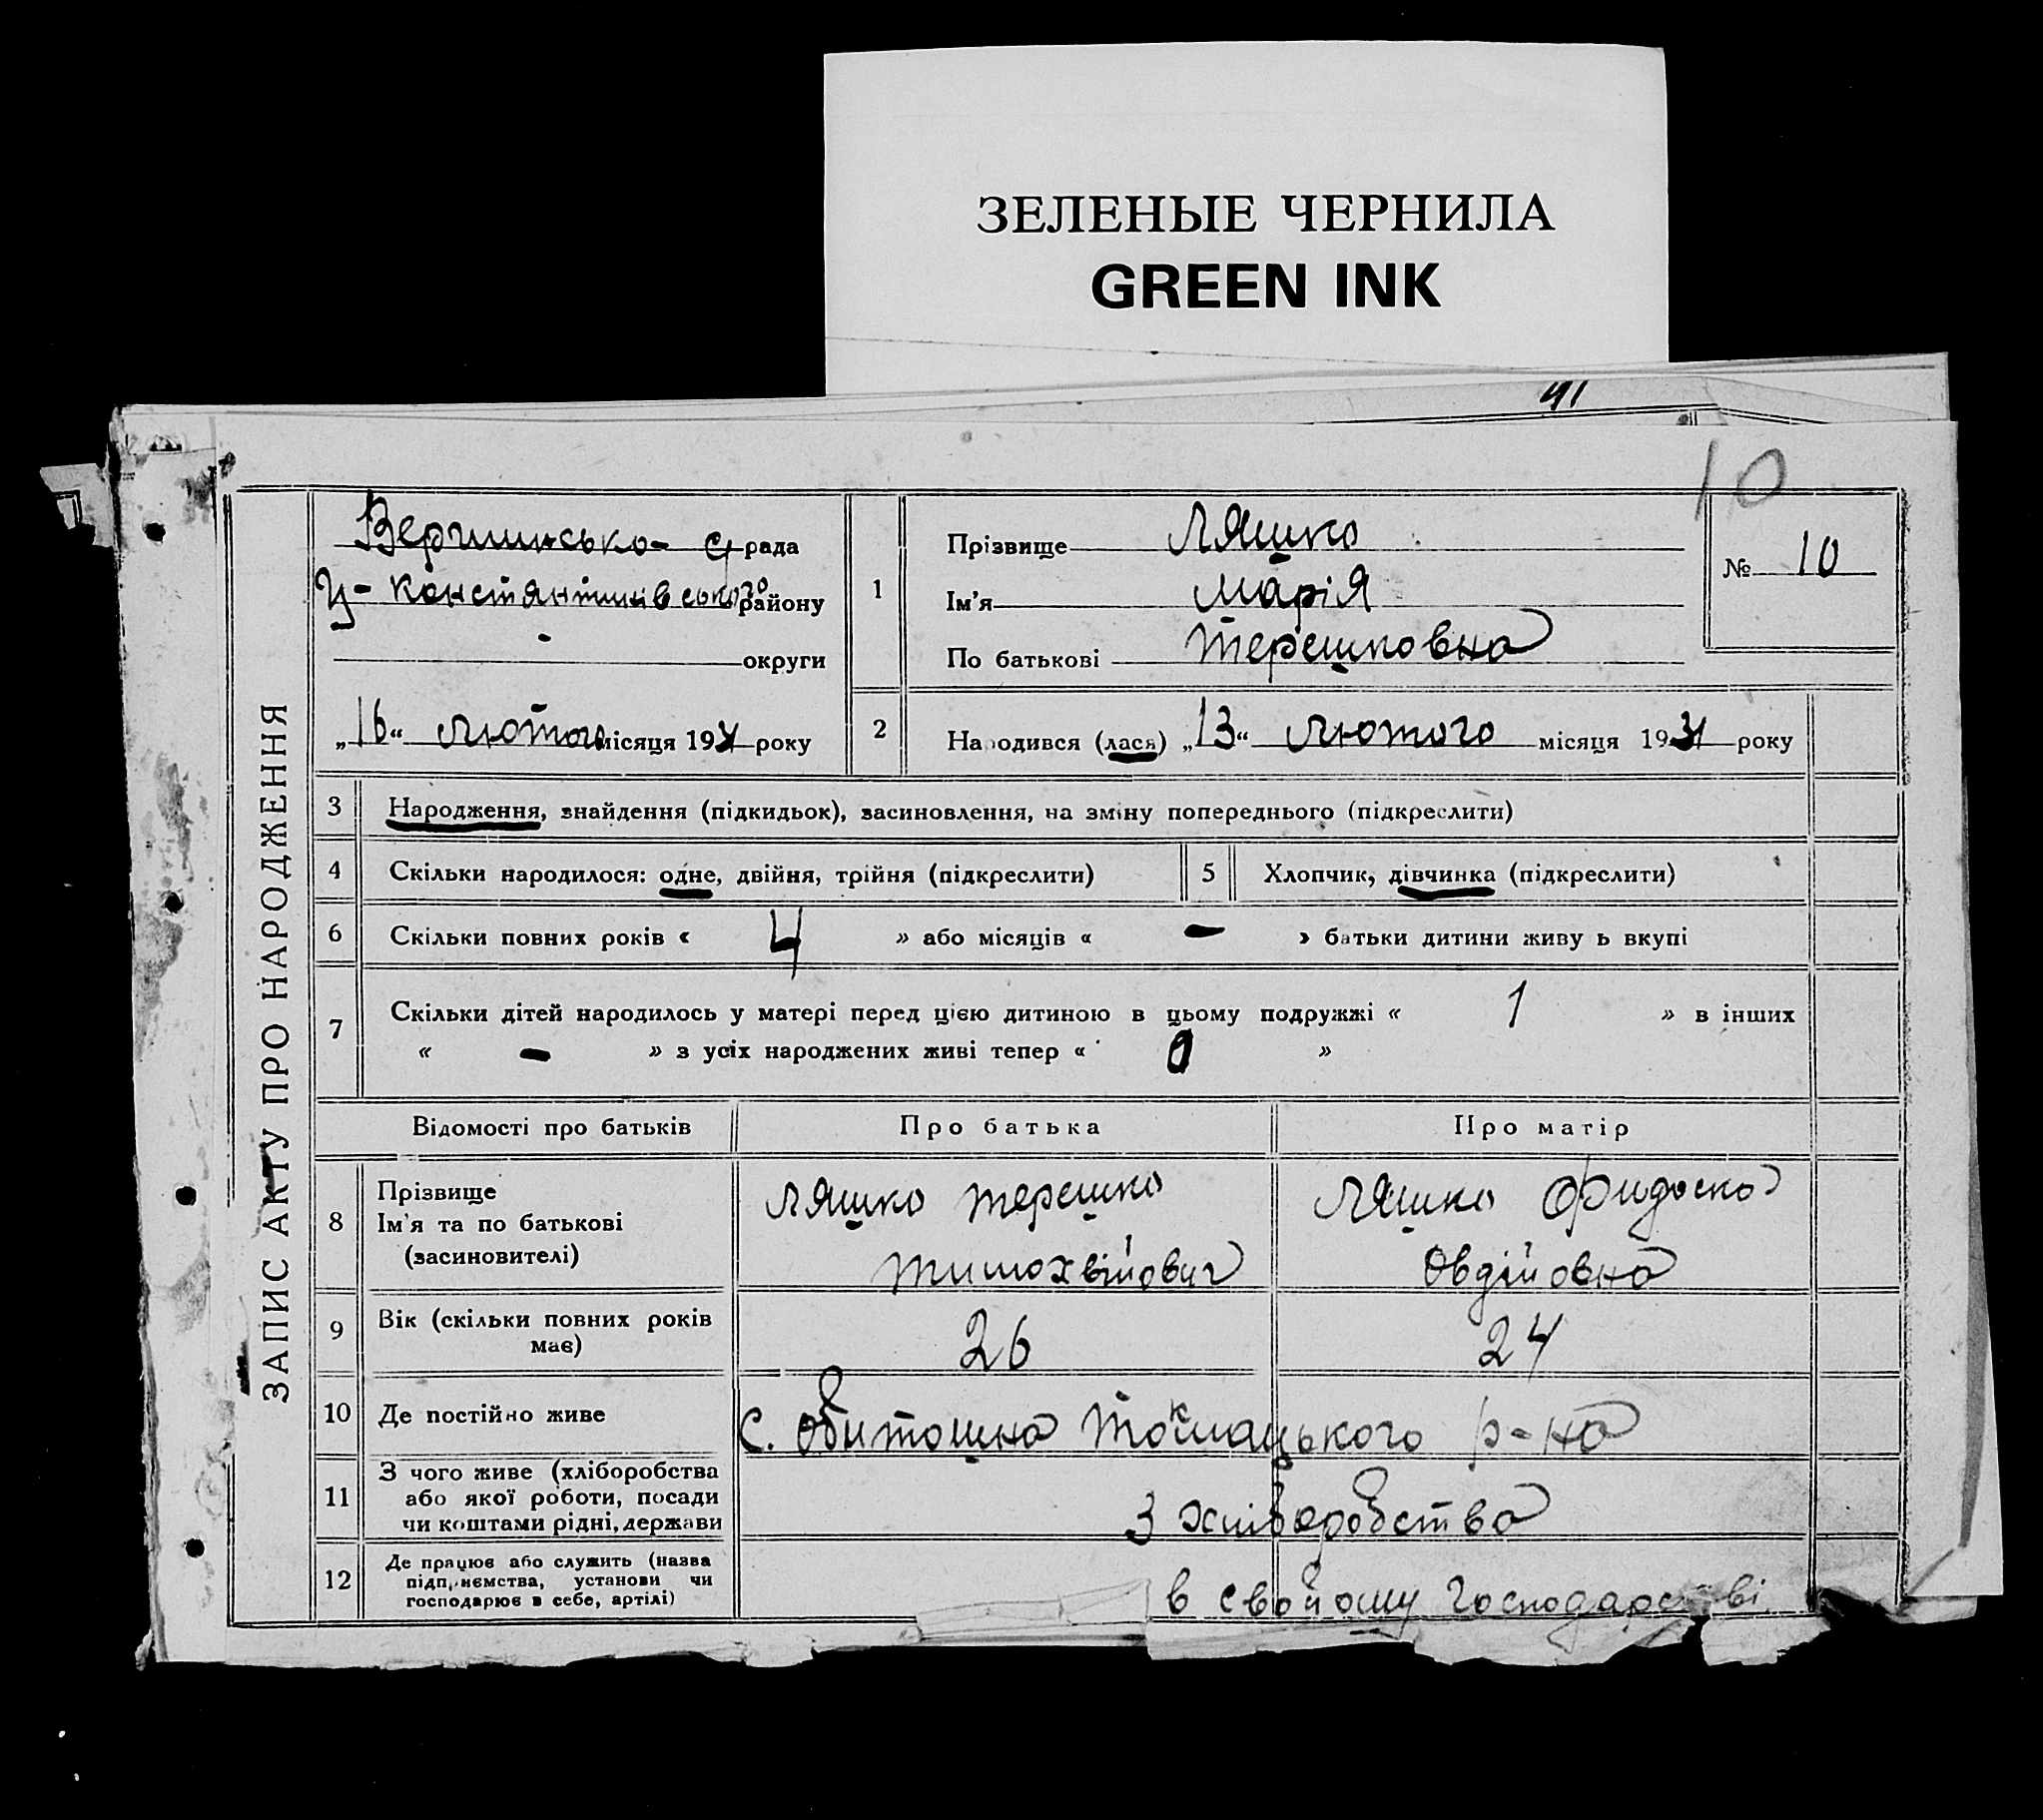 ЗЕЛЕНЫЕ ЧЕРНИЛА
GREEN INK
41
10
ЗАПИС АКТУ ПРО НАРОДЖЕННЯ
Вершинсько- с/рада
Ц-Констянтинівського району
- округи
„16“ Лютого місяця 1931 року
1
Прізвище Ляшко
Ім'я Марія
По батькові Терешковна
№ 10
2 Народився (лася) „13“ Лютого місяця 1931 року
3 Народження, знайдення (підкидьок), засиновлення, на зміну попереднього (підкреслити)
4 Скільки народилося: одне, двійня, трійня (підкреслити)
5 Хлопчик, дівчинка (підкреслити)
6 Скільки повних років « 4 » або місяців « - » батьки дитини живу ь вкупі
7 Скільки дітей народилось у матері перед цією дитиною в цьому подружжі « 1 » в інших
« - » з усіх народжених живі тепер « 0 »
Відомості про батьків Про батька Про матір
8 Прізвище
Ім'я та по батькові
(засиновителі)
Ляшко Терешко
Тимохвійович
Ляшко Фидоска
Овдійовна
9 Вік (скільки повних років
має)
26 24
10 Де постійно живе с. Обиточна Токмацького р-на
11 З чого живе (хліборобства
або якої роботи, посади
чи коштами рідні, держави
З хліборобства
12 Де працює або служить (назва
підприємства, установи чи
господарює в себе, артілі)
в свойому господарстві